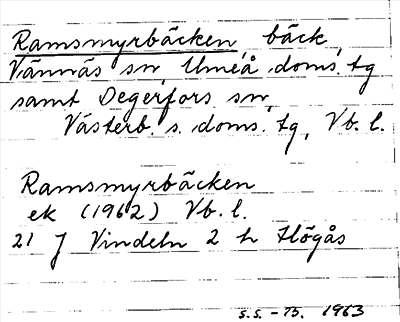 Ramsmyrbäcken, bäck,
Vännäs sn, Umeå doms. tg
samt Degerfors sn,
Västerb. s. doms. tg, Vb. l.
Ramsmyrbäcken
ek (1962) Vb. l.
21 J Vindeln 2 h Högås
s.s. - B. 1963